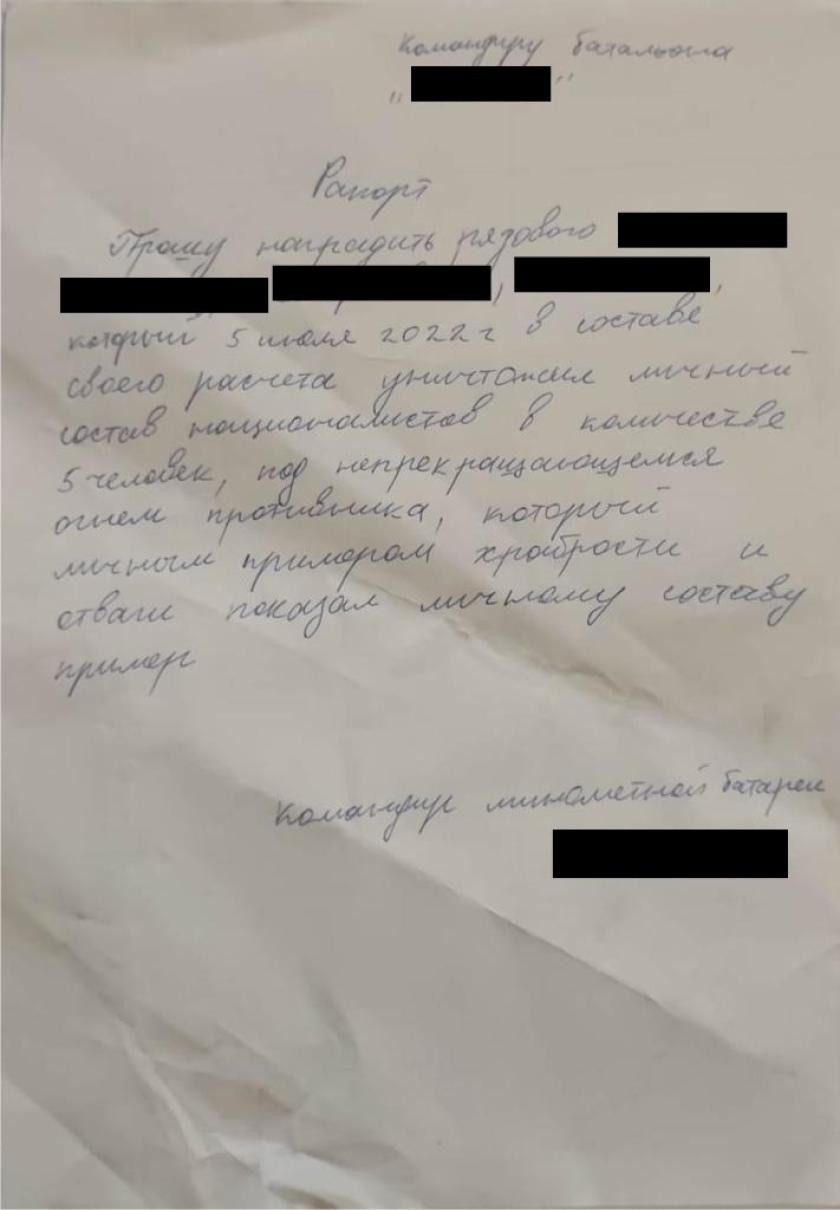 Командиру батальона
„ "
Рапорт
Прошу наградить рядового
, ,
который 5 июля 2022 г в составе
своего расчета уничтожил личный
состав националистов в количестве
5 человек, под непрекращающемся
огнем противника, который
личным примером храбрости и
отваги показал личному составу
пример
Командир минометной батареи